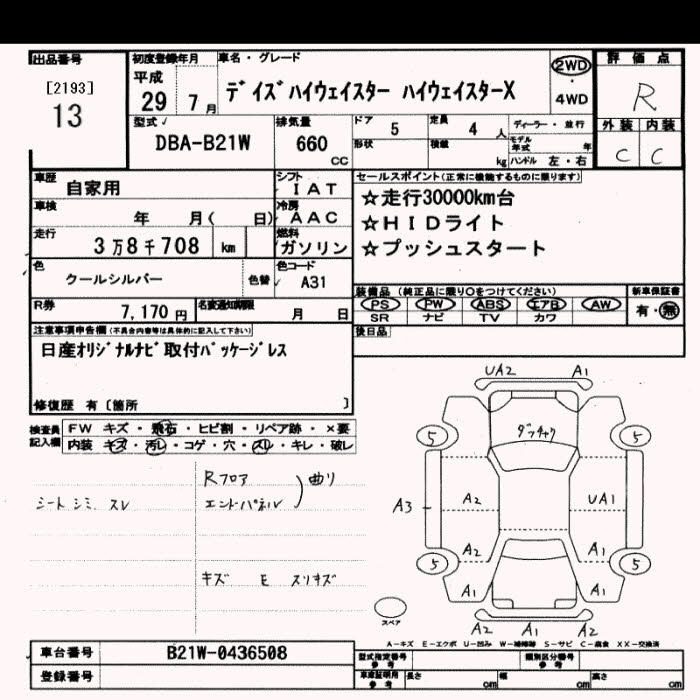 出品番号
[2193]
13
初度登録年月
平成
29 7月
車名・グレード
デイズハイウェイスター ハイウェイスターX
2WD
・
4WD
評価点
R
外装 内装
C C
型式
DBA-B21W
排気量
660
cc
ドア 5
定員 4 人
ディーラー・並行
形状
積載 kg
モデル年式 年
ハンドル 左・右
車歴 自家用
シフト IAT
車検 年 月( 日)
冷房 AAC
走行 3万8千708 km
燃料 ガソリン
色 クールシルバー
色替
色コード A31
R券 7,170円
名変通知期限 月 日
セールスポイント(正常に機能するものに限ります)
☆走行30000km台
☆HIDライト
☆プッシュスタート
装備品 (純正品に限り○をつけてください)
PS PW ABS エアB AW
SR ナビ TV カワ
新車保証書
有・無
後日品
注意事項申告欄(不具合内容等は具体的に記入して下さい)
日産オリジナルナビ取付パッケージレス
修復歴 有〔箇所 〕
検査員記入欄
FW キズ・飛石・ヒビ割・リペア跡・×要
内装 キズ・汚レ・コゲ・穴・スレ・キレ・破レ
シート シミ、スレ
Rフロア
エンドパネル
曲り
キズ E スリキズ
UA2 A1
ダッチャク
5 5
A3 A2 UA1
A2 A1
5 5
A1 A1
A2 A1 A2
スペア
A-キズ E-エクボ U-凹み W-補修跡 S-サビ C-腐食 XX-交換済
車台番号 B21W-0436508
登録番号
型式指定番号
参考
類別区分番号
参考
車庫証明用
参考
長さ cm
幅 cm
高さ cm